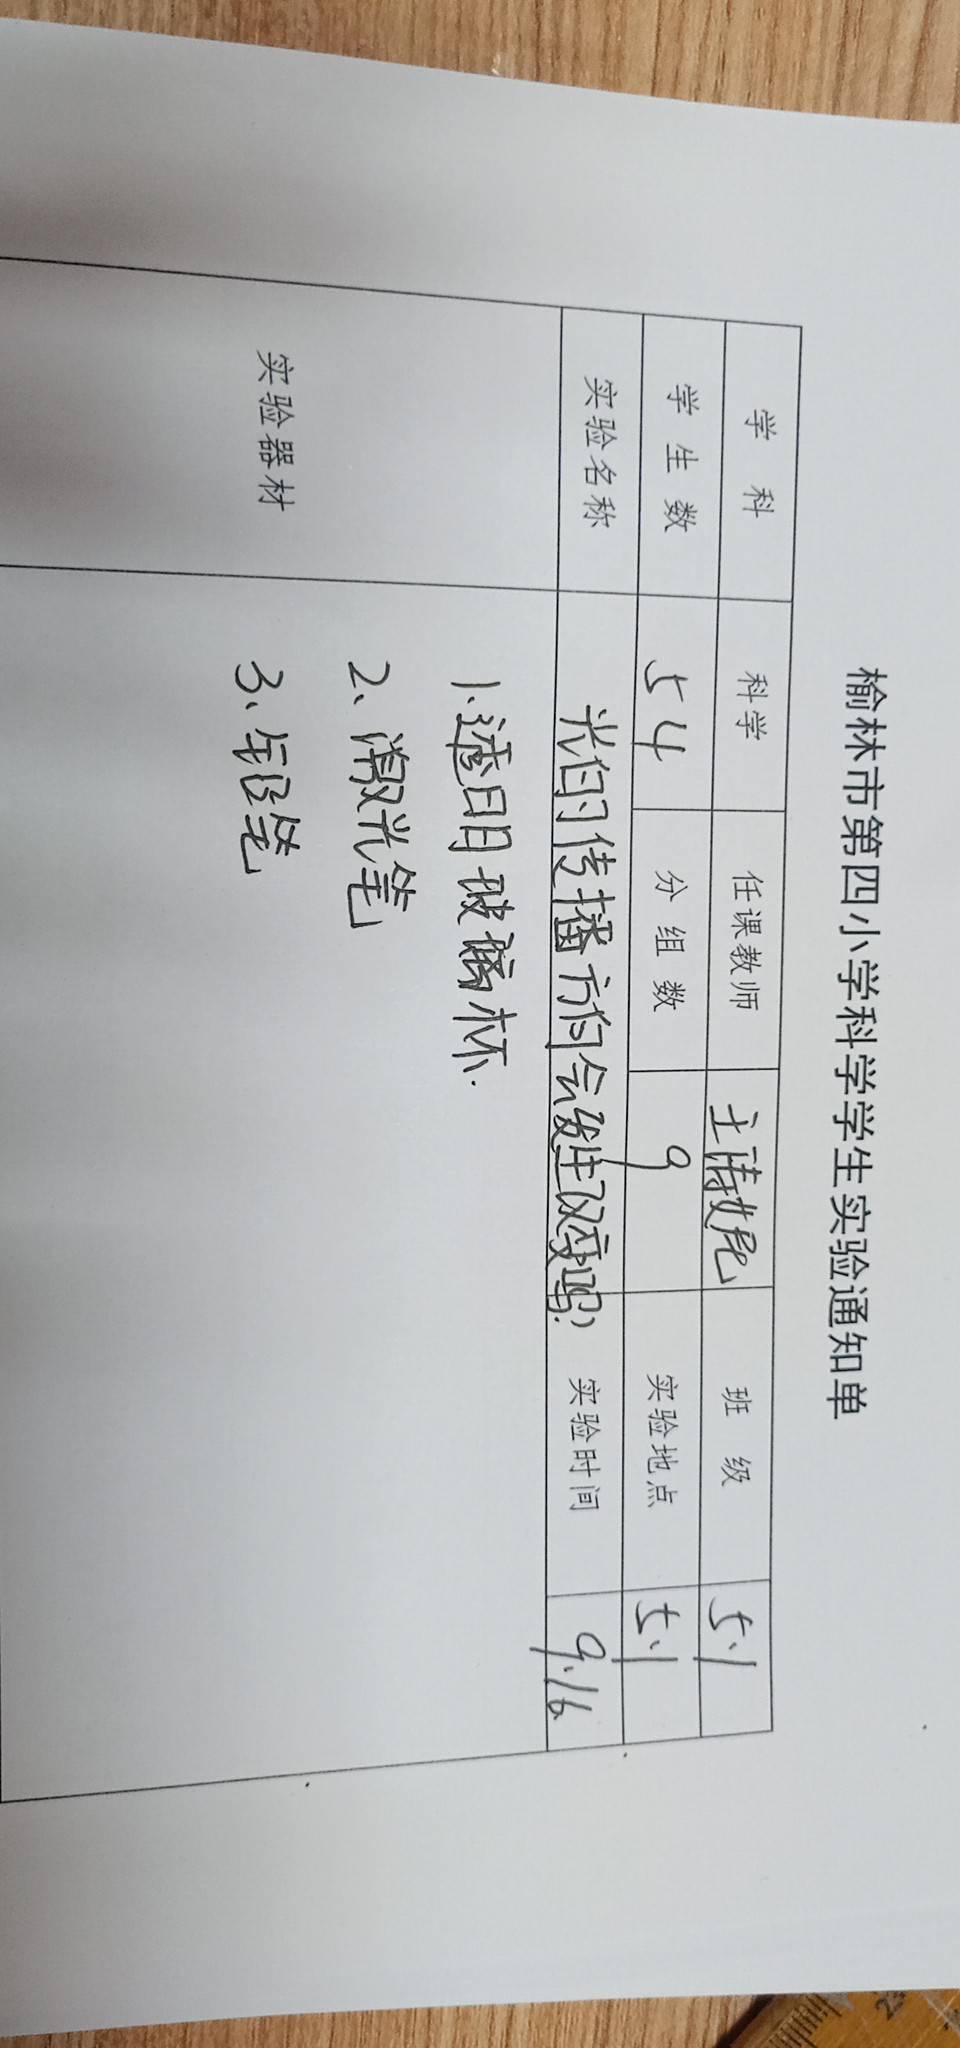 榆林市第四小学科学学生实验通知单
学 科 科学 任课教师 班 级 5.1
学 生 数 54 分 组 数 9 实验地点 5.1
实验名称 光的传播方向会发生改变吗? 实验时间 9.16
实验器材
1、透明玻璃杯.
2、激光笔
3、铅笔